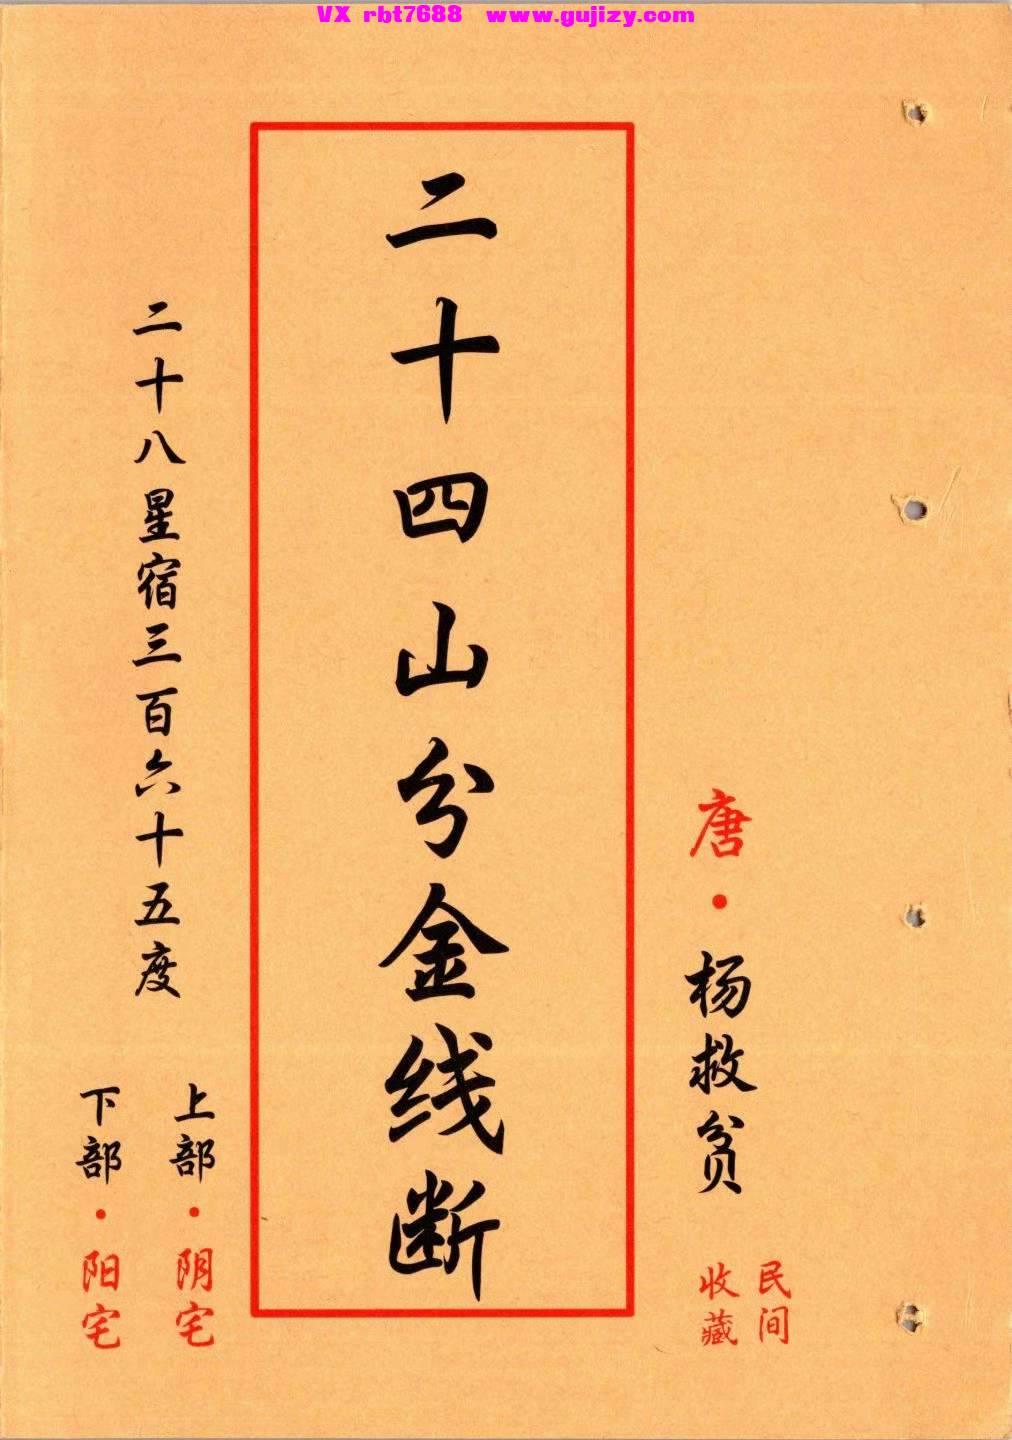 VX rbt7688 www.gujizy.com
唐·杨救贫
民间
收藏
二十四山分金线断
二十八星宿三百六十五度
上部·阴宅
下部·阳宅